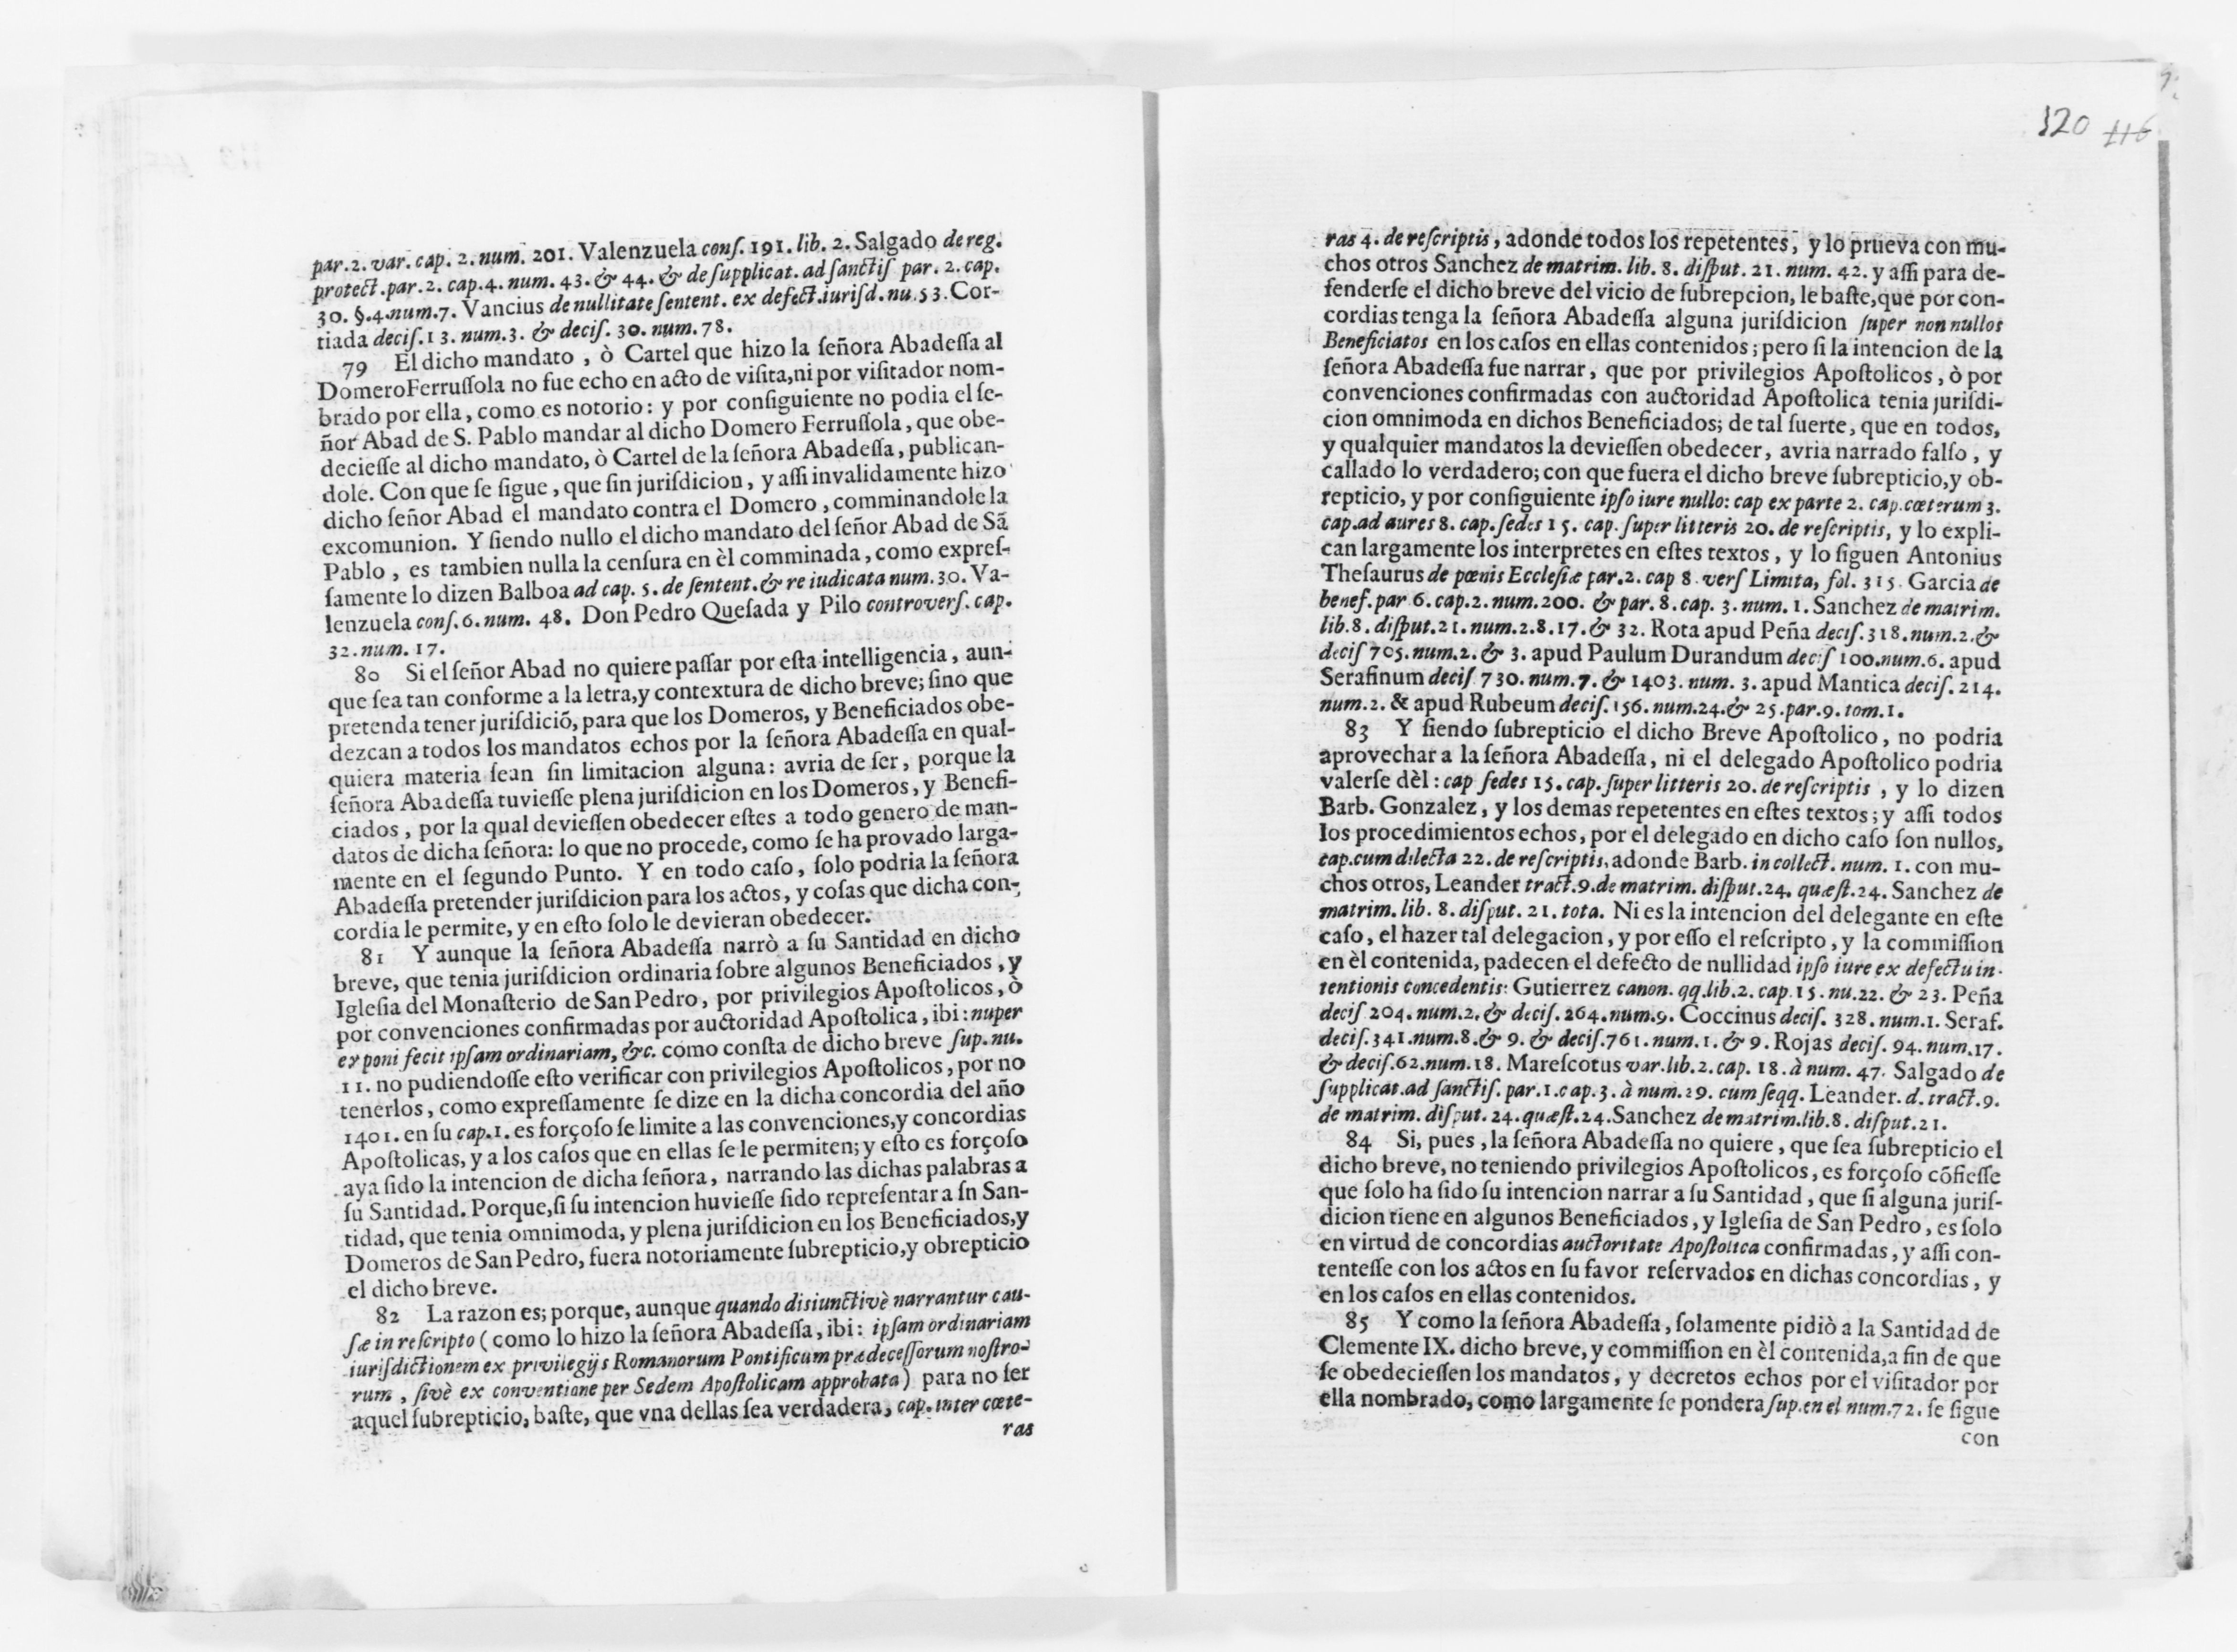 par.2. var. cap. 2. num. 201. Valenzuela conſ. 191. lib. 2. Salgado de reg.
protect. par. 2. cap. 4. num. 43. & 44. & de ſupplicat. ad ſanctiſ par. 2. cap.
30. §. 4. num. 7. Vancius de nullitate ſentent. ex defect. iuriſd. nu. 53. Cor-
tiada deciſ. 13. num. 3. & deciſ. 30. num. 78.
79 El dicho mandato, ò Cartel que hizo la ſeñora Abadeſſa al
Domero Ferruſſola no fue echo en acto de viſita, ni por viſitador nom-
brado por ella, como es notorio: y por conſiguiente no podia el ſe-
ñor Abad de S. Pablo mandar al dicho Domero Ferruſſola, que obe-
decieſſe al dicho mandato, ò Cartel de la ſeñora Abadeſſa, publican-
dole. Con que ſe ſigue, que ſin juriſdicion, y aſſi invalidamente hizo
dicho ſeñor Abad el mandato contra el Domero, comminandole la
excomunion. Y ſiendo nullo el dicho mandato del ſeñor Abad de Sã
Pablo, es tambien nulla la cenſura en èl comminada, como expreſ-
ſamente lo dizen Balboa ad cap. 5. de ſentent. & re iudicata num. 30. Va-
lenzuela conſ. 6. num. 48. Don Pedro Queſada y Pilo controverſ. cap.
32. num. 17.
80 Si el ſeñor Abad no quiere paſſar por eſta intelligencia, aun-
que ſea tan conforme a la letra, y contextura de dicho breve; ſino que
pretenda tener juriſdiciõ, para que los Domeros, y Beneficiados obe-
dezcan a todos los mandatos echos por la ſeñora Abadeſſa en qual-
quiera materia ſean ſin limitacion alguna: avria de ſer, porque la
ſeñora Abadeſſa tuvieſſe plena juriſdicion en los Domeros, y Benefi-
ciados, por la qual devieſſen obedecer eſtes a todo genero de man-
datos de dicha ſeñora: lo que no procede, como ſe ha provado larga-
mente en el ſegundo Punto. Y en todo caſo, ſolo podria la ſeñora
Abadeſſa pretender juriſdicion para los actos, y coſas que dicha con-
cordia le permite, y en eſto ſolo le devieran obedecer.
81 Y aunque la ſeñora Abadeſſa narrò a ſu Santidad en dicho
breve, que tenia juriſdicion ordinaria ſobre algunos Beneficiados, y
Igleſia del Monaſterio de San Pedro, por privilegios Apoſtolicos, ò
por convenciones confirmadas por auctoridad Apoſtolica, ibi: nuper
exponi fecit ipſam ordinariam, &c. como conſta de dicho breve ſup. nu.
11. no pudiendoſſe eſto verificar con privilegios Apoſtolicos, por no
tenerlos, como expreſſamente ſe dize en la dicha concordia del año
1401. en ſu cap. 1. es forçoſo ſe limite a las convenciones, y concordias
Apoſtolicas, y a los caſos que en ellas ſe le permiten; y eſto es forçoſo
aya ſido la intencion de dicha ſeñora, narrando las dichas palabras a
ſu Santidad. Porque, ſi ſu intencion huvieſſe ſido repreſentar a ſn San-
tidad, que tenia omnimoda, y plena juriſdicion en los Beneficiados, y
Domeros de San Pedro, fuera notoriamente ſubrepticio, y obrepticio
el dicho breve.
82 La razon es; porque, aunque quando disiunctivè narrantur cau-
ſæ in reſcripto (como lo hizo la ſeñora Abadeſſa, ibi: ipſam ordinariam
iuriſdictionem ex privilegijs Romanorum Pontificum prædeceſſorum noſtro-
rum, ſivè ex conventione per Sedem Apoſtolicam approbata) para no ſer
aquel ſubrepticio, baſte, que vna dellas ſea verdadera, cap. inter cæte-
ras
120 116
ras 4. de reſcriptis, adonde todos los repetentes, y lo prueva con mu-
chos otros Sanchez de matrim. lib. 8. diſput. 21. num. 42. y aſſi para de-
fenderſe el dicho breve del vicio de ſubrepcion, le baſte, que por con-
cordias tenga la ſeñora Abadeſſa alguna juriſdicion ſuper non nullos
Beneficiatos en los caſos en ellas contenidos; pero ſi la intencion de la
ſeñora Abadeſſa fue narrar, que por privilegios Apoſtolicos, ò por
convenciones confirmadas con auctoridad Apoſtolica tenia juriſdi-
cion omnimoda en dichos Beneficiados; de tal ſuerte, que en todos,
y qualquier mandatos la devieſſen obedecer, avria narrado falſo, y
callado lo verdadero; con que fuera el dicho breve ſubrepticio, y ob-
repticio, y por conſiguiente ipſo iure nullo: cap ex parte 2. cap. cæterum 3.
cap. ad aures 8. cap. ſedes 15. cap. ſuper litteris 20. de reſcriptis, y lo expli-
can largamente los interpretes en eſtes textos, y lo ſiguen Antonius
Theſaurus de pœnis Eccleſiæ par. 2. cap 8. verſ Limita, fol. 315. Garcia de
benef. par 6. cap. 2. num. 200. & par. 8. cap. 3. num. 1. Sanchez de matrim.
lib. 8. diſput. 21. num. 2. 8. 17. & 32. Rota apud Peña deciſ. 318. num. 2. &
deciſ 705. num. 2. & 3. apud Paulum Durandum deciſ 100. num. 6. apud
Serafinum deciſ 730. num. 7. & 1403. num. 3. apud Mantica deciſ. 214.
num. 2. & apud Rubeum deciſ. 156. num. 24. & 25. par. 9. tom. 1.
83 Y ſiendo ſubrepticio el dicho Breve Apoſtolico, no podria
aprovechar a la ſeñora Abadeſſa, ni el delegado Apoſtolico podria
valerſe dèl: cap ſedes 15. cap. ſuper litteris 20. de reſcriptis, y lo dizen
Barb. Gonzalez, y los demas repetentes en eſtes textos; y aſſi todos
los procedimientos echos, por el delegado en dicho caſo ſon nullos,
cap. cum dilecta 22. de reſcriptis, adonde Barb. in collect. num. 1. con mu-
chos otros, Leander tract. 9. de matrim. diſput. 24. quæſt. 24. Sanchez de
matrim. lib. 8. diſput. 21. tota. Ni es la intencion del delegante en eſte
caſo, el hazer tal delegacion, y por eſſo el reſcripto, y la commiſſion
en èl contenida, padecen el defecto de nullidad ipſo iure ex defectu in-
tentionis concedentis: Gutierrez canon. qq. lib. 2. cap. 15. nu. 22. & 23. Peña
deciſ 204. num. 2. & deciſ. 264. num. 9. Coccinus deciſ. 328. num. 1. Seraf.
deciſ. 341. num. 8. & 9. & deciſ. 761. num. 1. & 9. Rojas deciſ. 94. num. 17.
& deciſ. 62. num. 18. Mareſcotus var. lib. 2. cap. 18. à num. 47. Salgado de
ſupplicat. ad ſanctiſ. par. 1. cap. 3. à num. 29. cum ſeqq. Leander. d. tract. 9.
de matrim. diſput. 24. quæſt. 24. Sanchez de matrim. lib. 8. diſput. 21.
84 Si, pues, la ſeñora Abadeſſa no quiere, que ſea ſubrepticio el
dicho breve, no teniendo privilegios Apoſtolicos, es forçoſo cõfieſſe
que ſolo ha ſido ſu intencion narrar a ſu Santidad, que ſi alguna juriſ-
dicion tiene en algunos Beneficiados, y Igleſia de San Pedro, es ſolo
en virtud de concordias auctoritate Apoſtolica confirmadas, y aſſi con-
tenteſſe con los actos en ſu favor reſervados en dichas concordias, y
en los caſos en ellas contenidos.
85 Y como la ſeñora Abadeſſa, ſolamente pidiò a la Santidad de
Clemente IX. dicho breve, y commiſſion en èl contenida, a fin de que
ſe obedecieſſen los mandatos, y decretos echos por el viſitador por
ella nombrado, como largamente ſe pondera ſup. en el num. 72. ſe ſigue
con